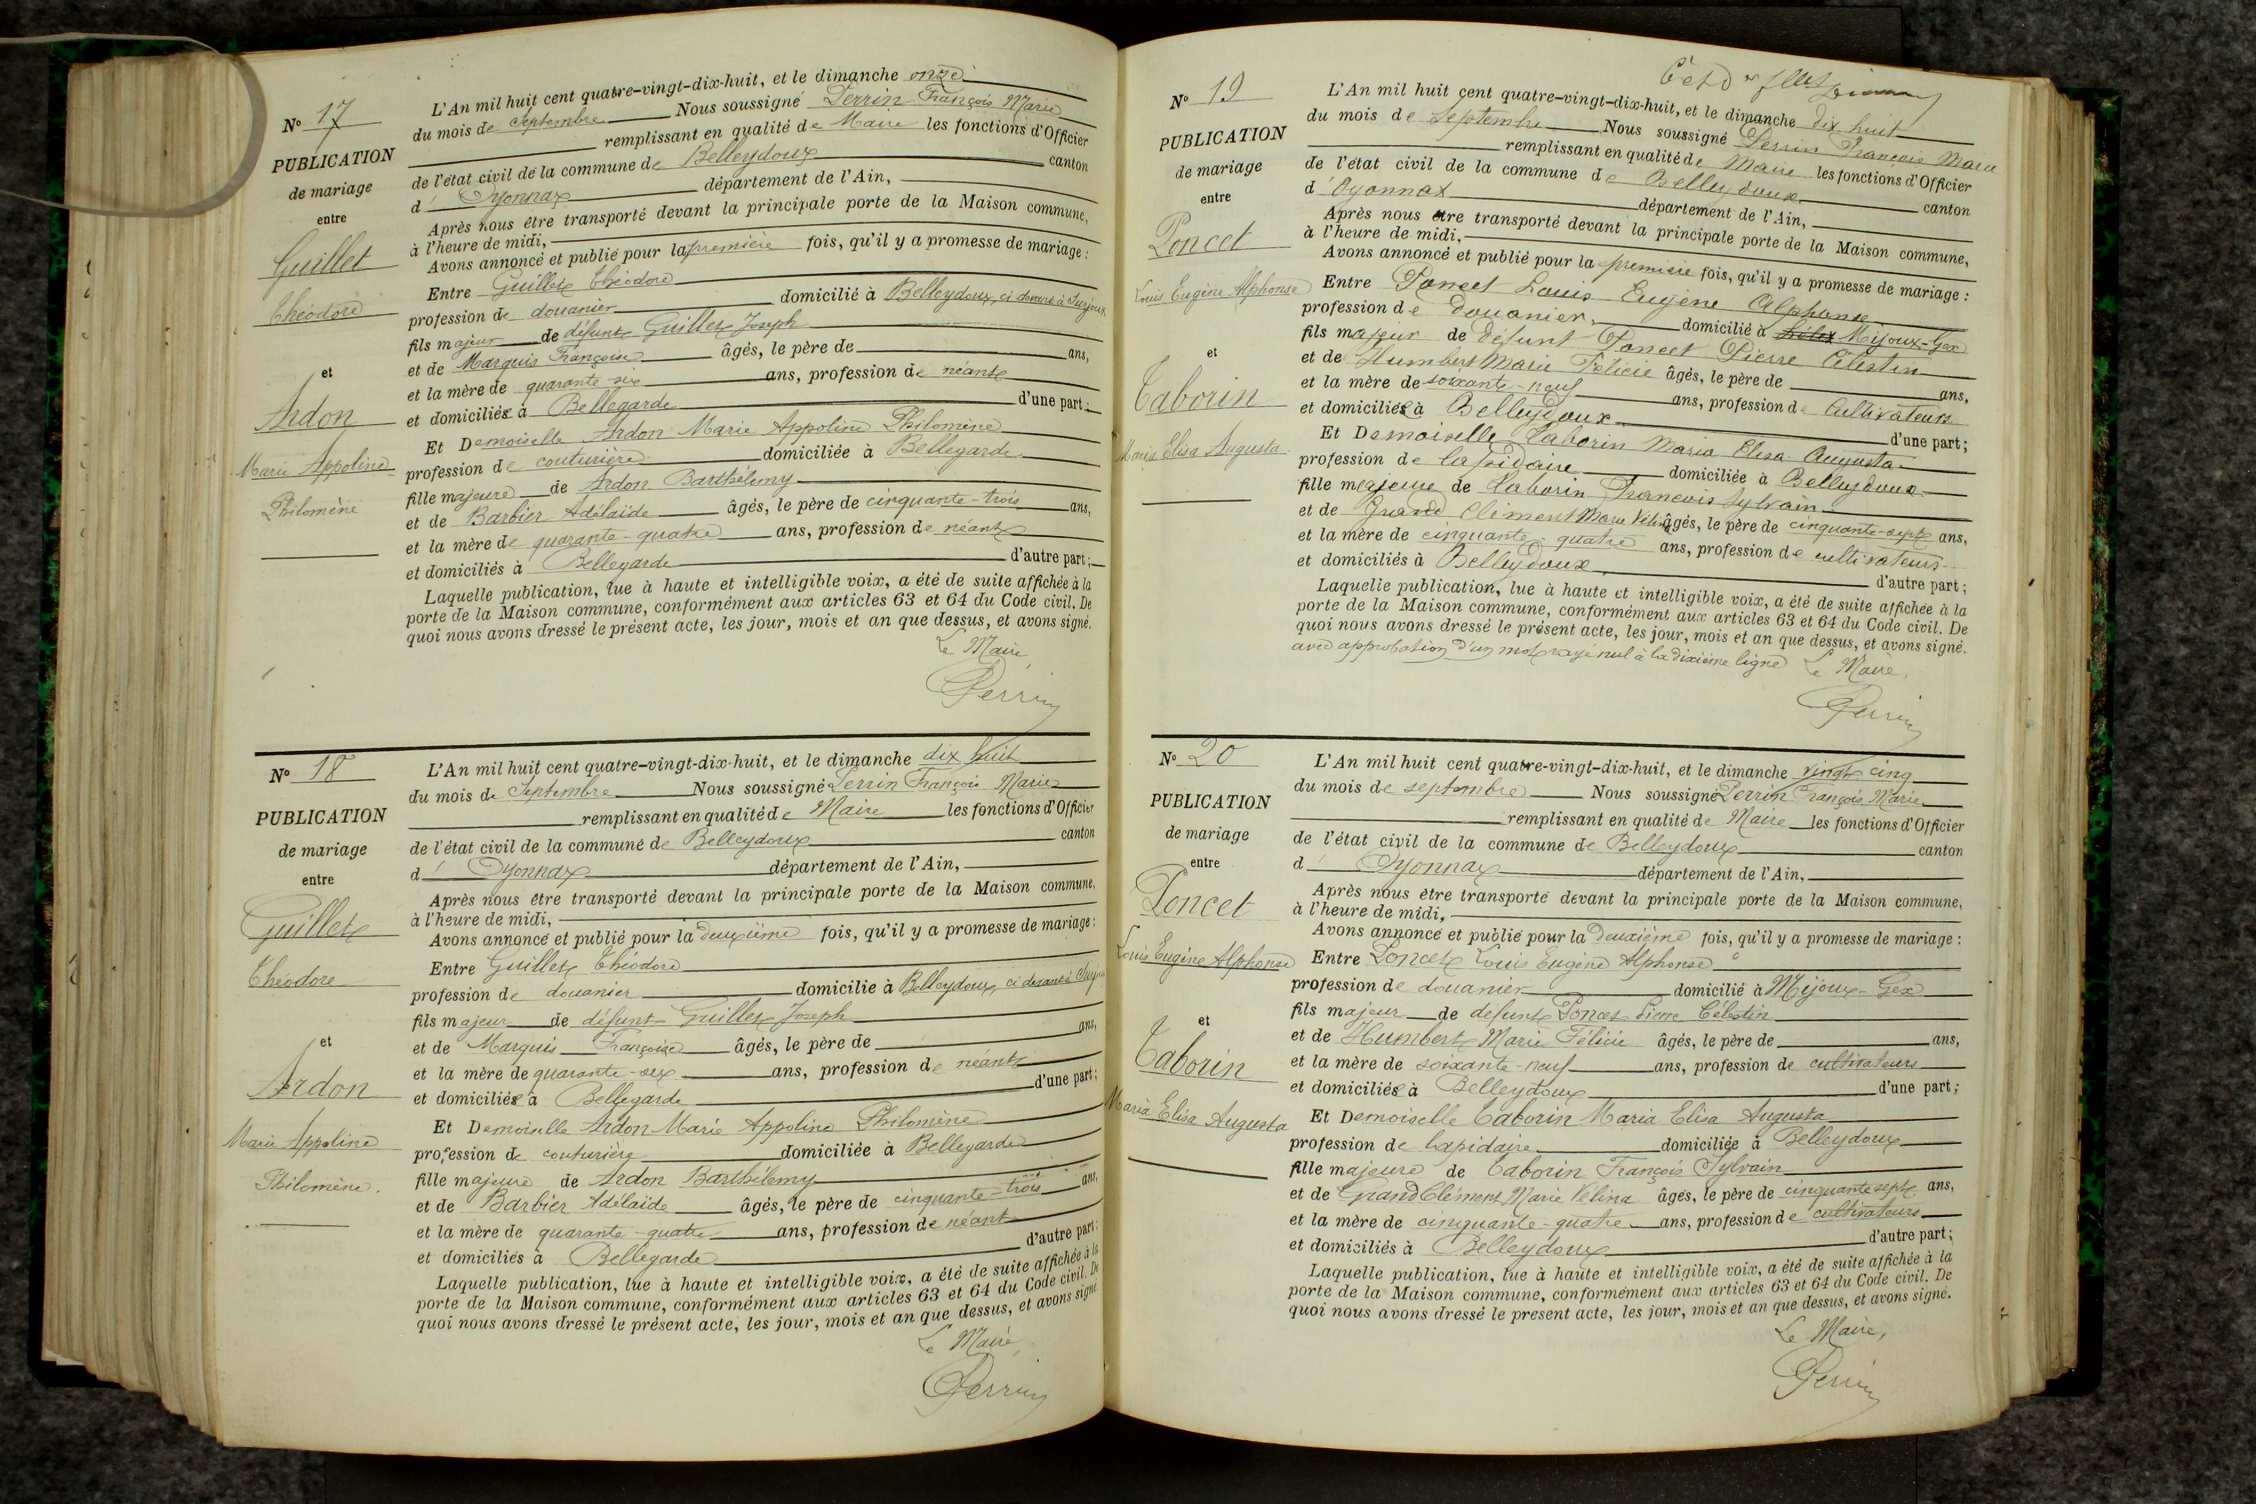 N° 17
PUBLICATION
de mariage
entre
Guillet
Théodore
et
Ardon
Marie Appoline
Philomène
L'An mil huit cent quatre-vingt-dix-huit, et le dimanche onze
du mois de Septembre Nous soussigné Perrin François Marie
remplissant en qualité de Maire les fonctions d'Officier
de l'état civil de la commune de Belleydoux canton
d'Oyonnax département de l'Ain,
Après nous être transporté devant la principale porte de la Maison commune,
à l'heure de midi,
Avons annoncé et publié pour la première fois, qu'il y a promesse de mariage :
Entre Guillet Théodore
profession de douanier domicilié à Belleydoux, ci devant à Surjoux
fils majeur de défunt Guillet Joseph
et de Marquis Françoise âgés, le père de ans,
et la mère de quarante-six ans, profession de néant
et domiciliés à Bellegarde d'une part ;
Et Demoiselle Ardon Marie Appoline Philomène
profession de couturière domiciliée à Bellegarde
fille majeure de Ardon Barthélemy
et de Barbier Adélaïde âgés, le père de cinquante-trois ans,
et la mère de quarante-quatre ans, profession de néant
et domiciliés à Bellegarde d'autre part ;
Laquelle publication, lue à haute et intelligible voix, a été de suite affichée à la
porte de la Maison commune, conformément aux articles 63 et 64 du Code civil. De
quoi nous avons dressé le présent acte, les jour, mois et an que dessus, et avons signé.
Le Maire,
Perrin
N° 18
PUBLICATION
de mariage
entre
Guillet
Théodore
et
Ardon
Marie Appoline
Philomène.
L'An mil huit cent quatre-vingt-dix-huit, et le dimanche dix huit
du mois de Septembre Nous soussigné Perrin François Marie
remplissant en qualité de Maire les fonctions d'Officier
de l'état civil de la commune de Belleydoux canton
d'Oyonnax département de l'Ain,
Après nous être transporté devant la principale porte de la Maison commune,
à l'heure de midi,
Avons annoncé et publié pour la deuxième fois, qu'il y a promesse de mariage :
Entre Guillet Théodore
profession de douanier domicilié à Belleydoux, ci devant à
fils majeur de défunt Guillet Joseph
et de Marquis Françoise âgés, le père de ans,
et la mère de quarante-six ans, profession de néant
et domiciliés à Bellegarde d'une part ;
Et Demoiselle Ardon Marie Appoline Philomène
profession de couturière domiciliée à Bellegarde
fille majeure de Ardon Barthélemy
et de Barbier Adélaïde âgés, le père de cinquante-trois ans,
et la mère de quarante-quatre ans, profession de néant
et domiciliés à Bellegarde d'autre part ;
Laquelle publication, lue à haute et intelligible voix, a été de suite affichée à la
porte de la Maison commune, conformément aux articles 63 et 64 du Code civil. De
quoi nous avons dressé le présent acte, les jour, mois et an que dessus, et avons signé
Le Maire,
Perrin
N° 19
PUBLICATION
de mariage
entre
Poncet
Louis Eugène Alphonse
et
Taborin
Maria Elisa Augusta
L'An mil huit cent quatre-vingt-dix-huit, et le dimanche dix huit
du mois de Septembre Nous soussigné Perrin François Marie
remplissant en qualité de Maire les fonctions d'Officier
de l'état civil de la commune de Belleydoux canton
d'Oyonnax département de l'Ain,
Après nous être transporté devant la principale porte de la Maison commune,
à l'heure de midi,
Avons annoncé et publié pour la première fois, qu'il y a promesse de mariage :
Entre Poncet Louis Eugène Alphonse
profession de douanier domicilié à Mijoux-Gex
fils majeur de défunt Poncet Pierre Célestin
et de Humbert Marie Félicie âgés, le père de ans,
et la mère de soixante-neuf ans, profession de cultivateurs
et domiciliés à Belleydoux d'une part ;
Et Demoiselle Taborin Maria Elisa Augusta
profession de lapidaire domiciliée à Belleydoux
fille majeure de Taborin François Sylvain
et de Grand Clément Marie Vélina âgés, le père de cinquante-sept ans,
et la mère de cinquante-quatre ans, profession de cultivateurs
et domiciliés à Belleydoux d'autre part ;
Laquelle publication, lue à haute et intelligible voix, a été de suite affichée à la
porte de la Maison commune, conformément aux articles 63 et 64 du Code civil. De
quoi nous avons dressé le présent acte, les jour, mois et an que dessus, et avons signé.
avec approbation d'un mot rayé nul à la dixième ligne Le Maire,
Perrin
N° 20
PUBLICATION
de mariage
entre
Poncet
Louis Eugène Alphonse
et
Taborin
Maria Elisa Augusta
L'An mil huit cent quatre-vingt-dix-huit, et le dimanche vingt cinq
du mois de septembre Nous soussigné Perrin François Marie
remplissant en qualité de Maire les fonctions d'Officier
de l'état civil de la commune de Belleydoux canton
d'Oyonnax département de l'Ain,
Après nous être transporté devant la principale porte de la Maison commune,
à l'heure de midi,
Avons annoncé et publié pour la deuxième fois, qu'il y a promesse de mariage :
Entre Poncet Louis Eugène Alphonse
profession de douanier domicilié à Mijoux-Gex
fils majeur de défunt Poncet Pierre Célestin
et de Humbert Marie Félicie âgés, le père de ans,
et la mère de soixante-neuf ans, profession de cultivateurs
et domiciliés à Belleydoux d'une part ;
Et Demoiselle Taborin Maria Elisa Augusta
profession de lapidaire domiciliée à Belleydoux
fille majeure de Taborin François Sylvain
et de Grand Clément Marie Vélina âgés, le père de cinquante sept ans,
et la mère de cinquante-quatre ans, profession de cultivateurs
et domiciliés à Belleydoux d'autre part ;
Laquelle publication, lue à haute et intelligible voix, a été de suite affichée à la
porte de la Maison commune, conformément aux articles 63 et 64 du Code civil. De
quoi nous avons dressé le présent acte, les jour, mois et an que dessus, et avons signé.
Le Maire,
Perrin